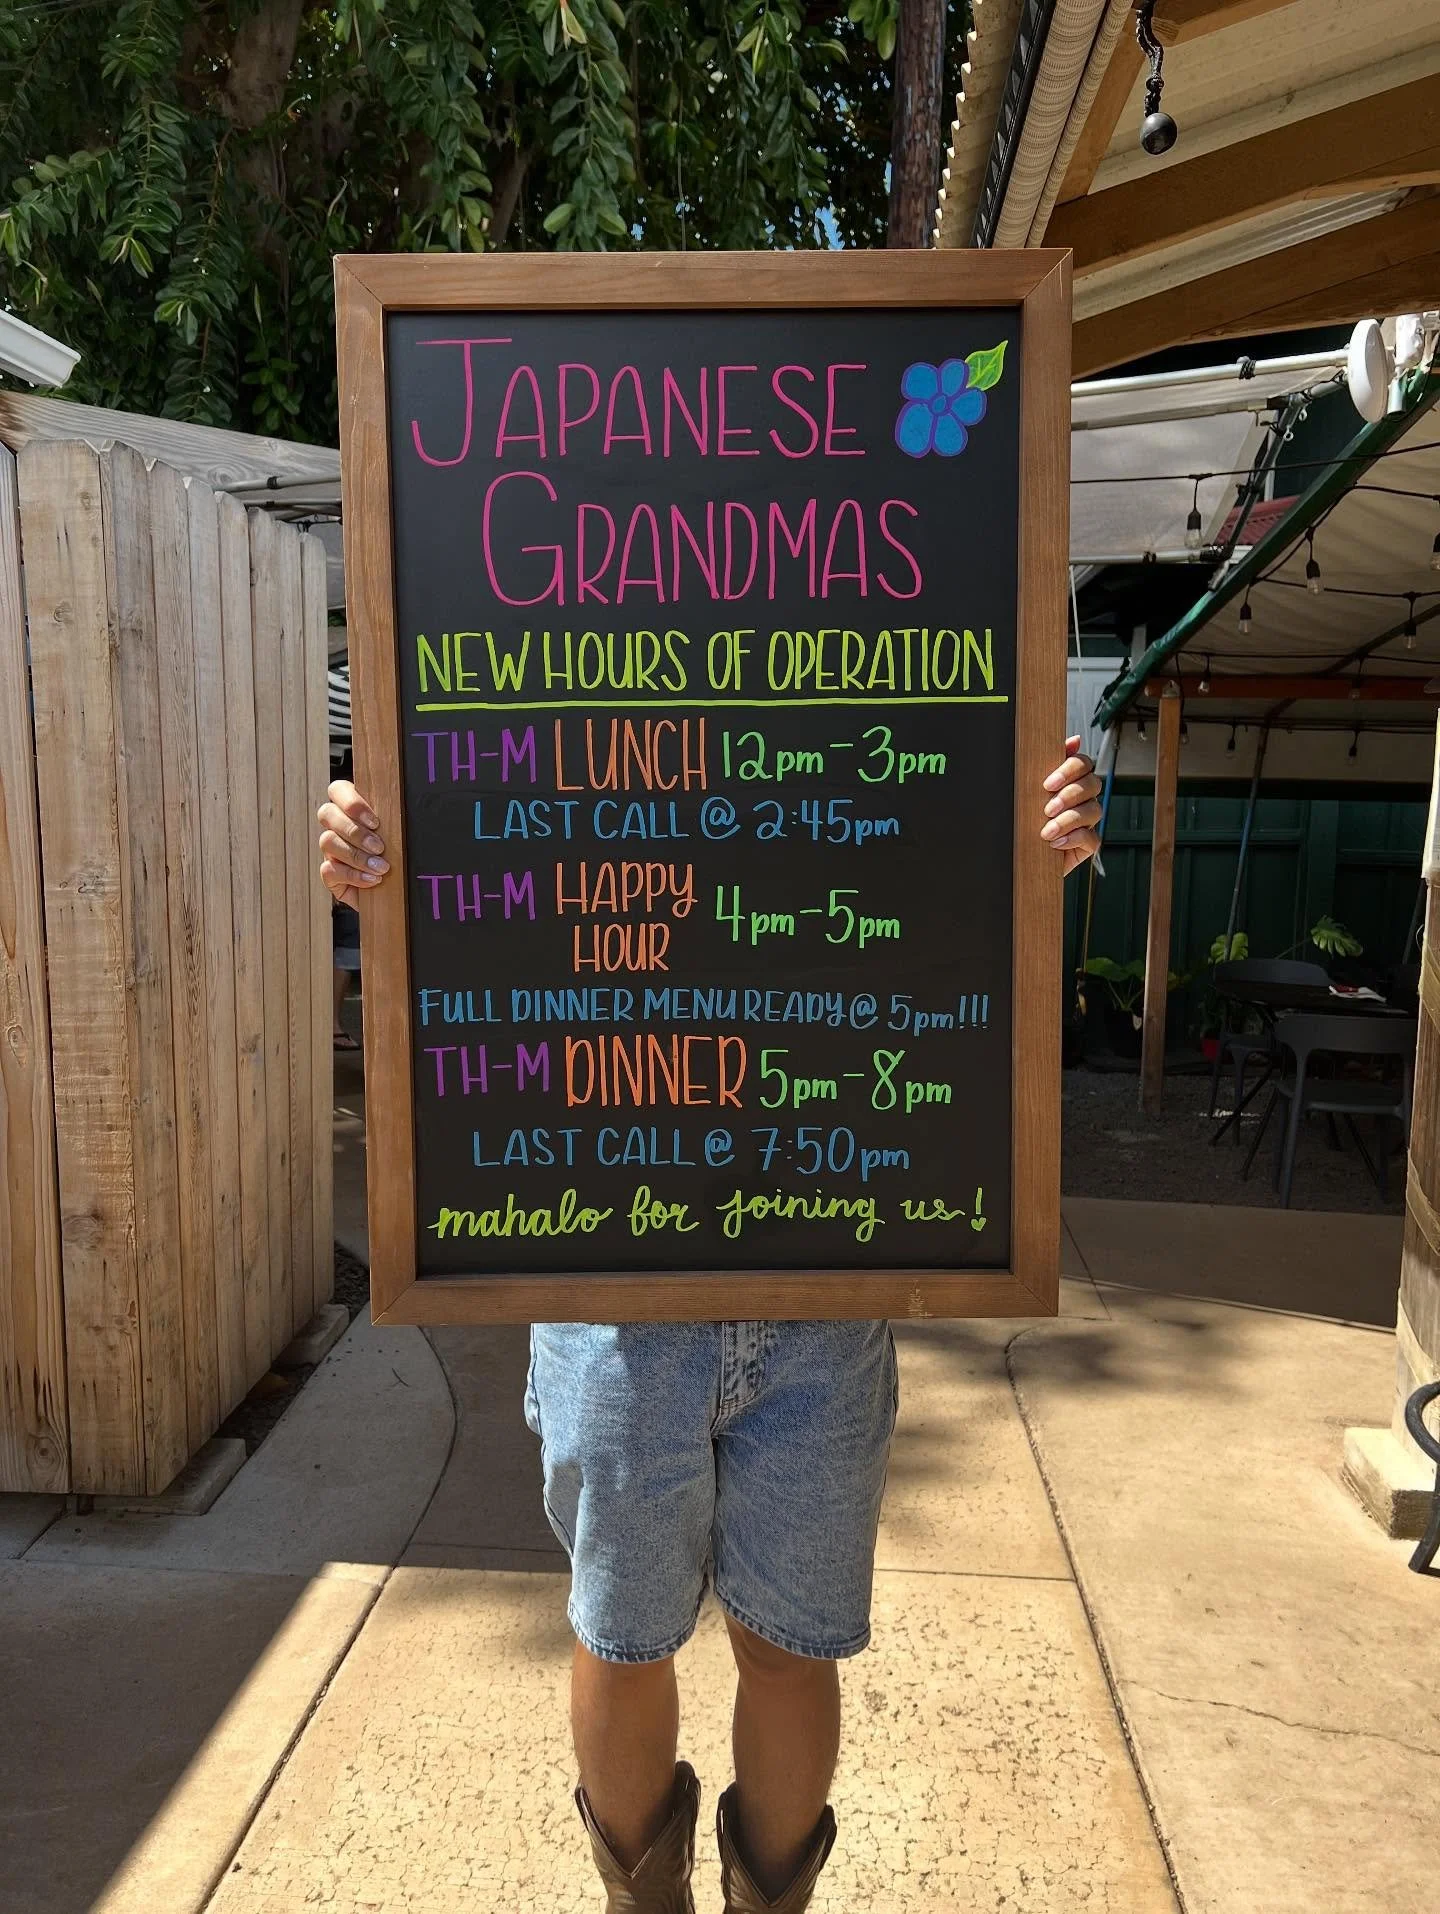 JAPANESE
GRANDMAS
NEW HOURS OF OPERATION
TH-M LUNCH 12pm-3pm
LAST CALL @ 2:45pm
TH-M HAPPY HOUR 4pm-5pm
FULL DINNER MENU READY @ 5pm!!!
TH-M DINNER 5pm-8pm
LAST CALL @ 7:50pm
mahalo for joining us!